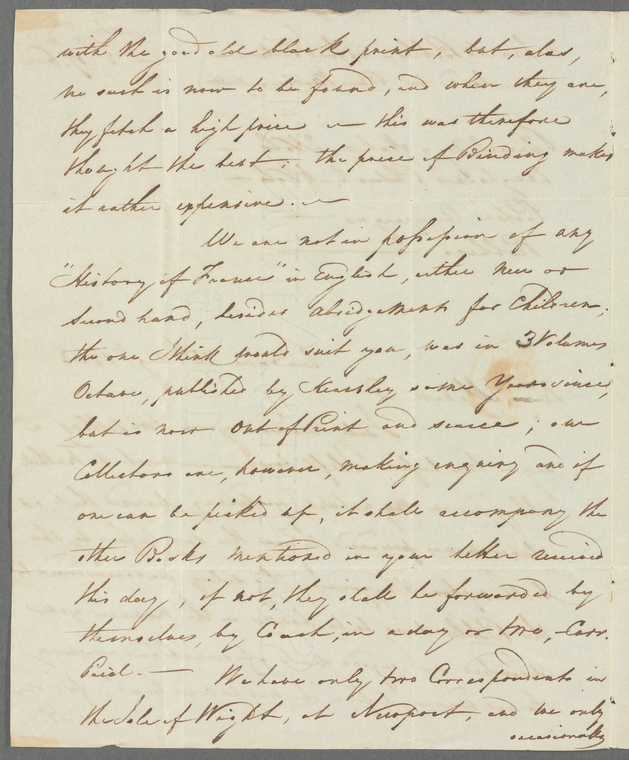 with the good old black print, but, alas,
no such is now to be found, and when they are,
they fetch a high price — this was therefore
thought the best; the price of Binding makes
it rather expensive. —
We are not in possession of any
"History of France" in English, either New or
Second hand, besides abridgements for Children;
the one I think would suit you, was in 3 Volumes
Octavo, published by Kearsley some Years since,
but is now Out of Print and scarce; our
Collectors are, however, making enquiry and if
one can be picked up, it shall accompany the
other Books mentioned in your Letter received
this day, if not, they shall be forwarded by
themselves, by Coach, in a day or two, – Carr.
Paid. — We have only two Correspondents in
the Isle of Wight, at Newport, and we only
occasionally